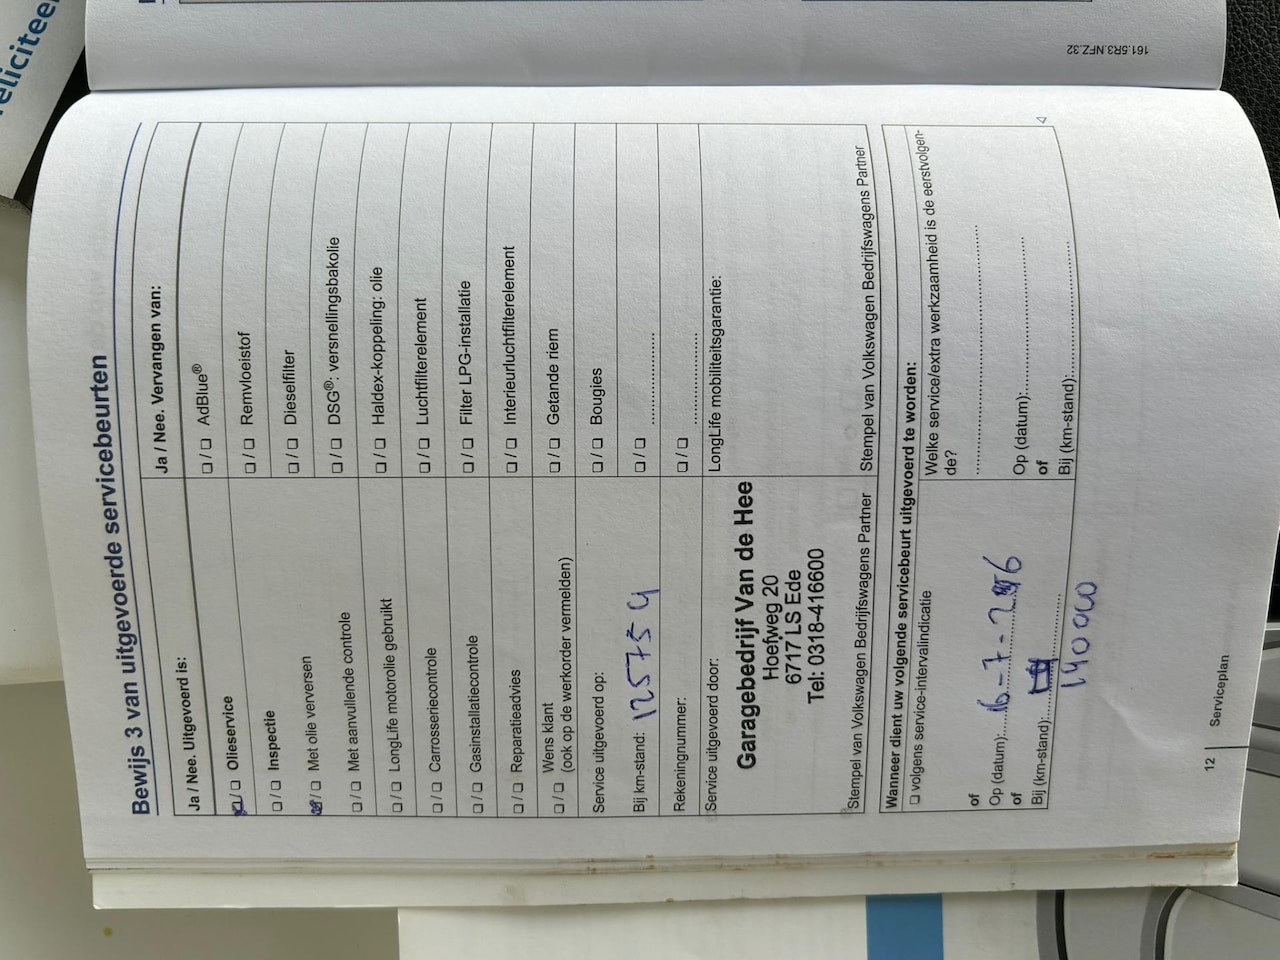 eliciteer
161.5R3.NFZ.32
Bewijs 3 van uitgevoerde servicebeurten
Ja / Nee. Uitgevoerd is:
☐ / ☐ Olieservice
☐ / ☐ Inspectie
☐ / ☐ Met olie verversen
☐ / ☐ Met aanvullende controle
☐ / ☐ LongLife motorolie gebruikt
☐ / ☐ Carrosseriecontrole
☐ / ☐ Gasinstallatiecontrole
☐ / ☐ Reparatieadvies
☐ / ☐ Wens klant
(ook op de werkorder vermelden)
Service uitgevoerd op:
Bij km-stand: 125754
Rekeningnummer:
Service uitgevoerd door:
Garagebedrijf Van de Hee
Hoefweg 20
6717 LS Ede
Tel: 0318-416600
Stempel van Volkswagen Bedrijfswagens Partner
Ja / Nee. Vervangen van:
☐ / ☐ AdBlue®
☐ / ☐ Remvloeistof
☐ / ☐ Dieselfilter
☐ / ☐ DSG®: versnellingsbakolie
☐ / ☐ Haldex-koppeling: olie
☐ / ☐ Luchtfilterelement
☐ / ☐ Filter LPG-installatie
☐ / ☐ Interieurluchtfilterelement
☐ / ☐ Getande riem
☐ / ☐ Bougies
☐ / ☐ ....................
☐ / ☐ ....................
LongLife mobiliteitsgarantie:
Stempel van Volkswagen Bedrijfswagens Partner
Wanneer dient uw volgende servicebeurt uitgevoerd te worden:
☐ volgens service-intervalindicatie
of
Op (datum):
of
Bij (km-stand):
140000
Welke service/extra werkzaamheid is de eerstvolgen-
de?
Op (datum):
of
Bij (km-stand):
12
Serviceplan